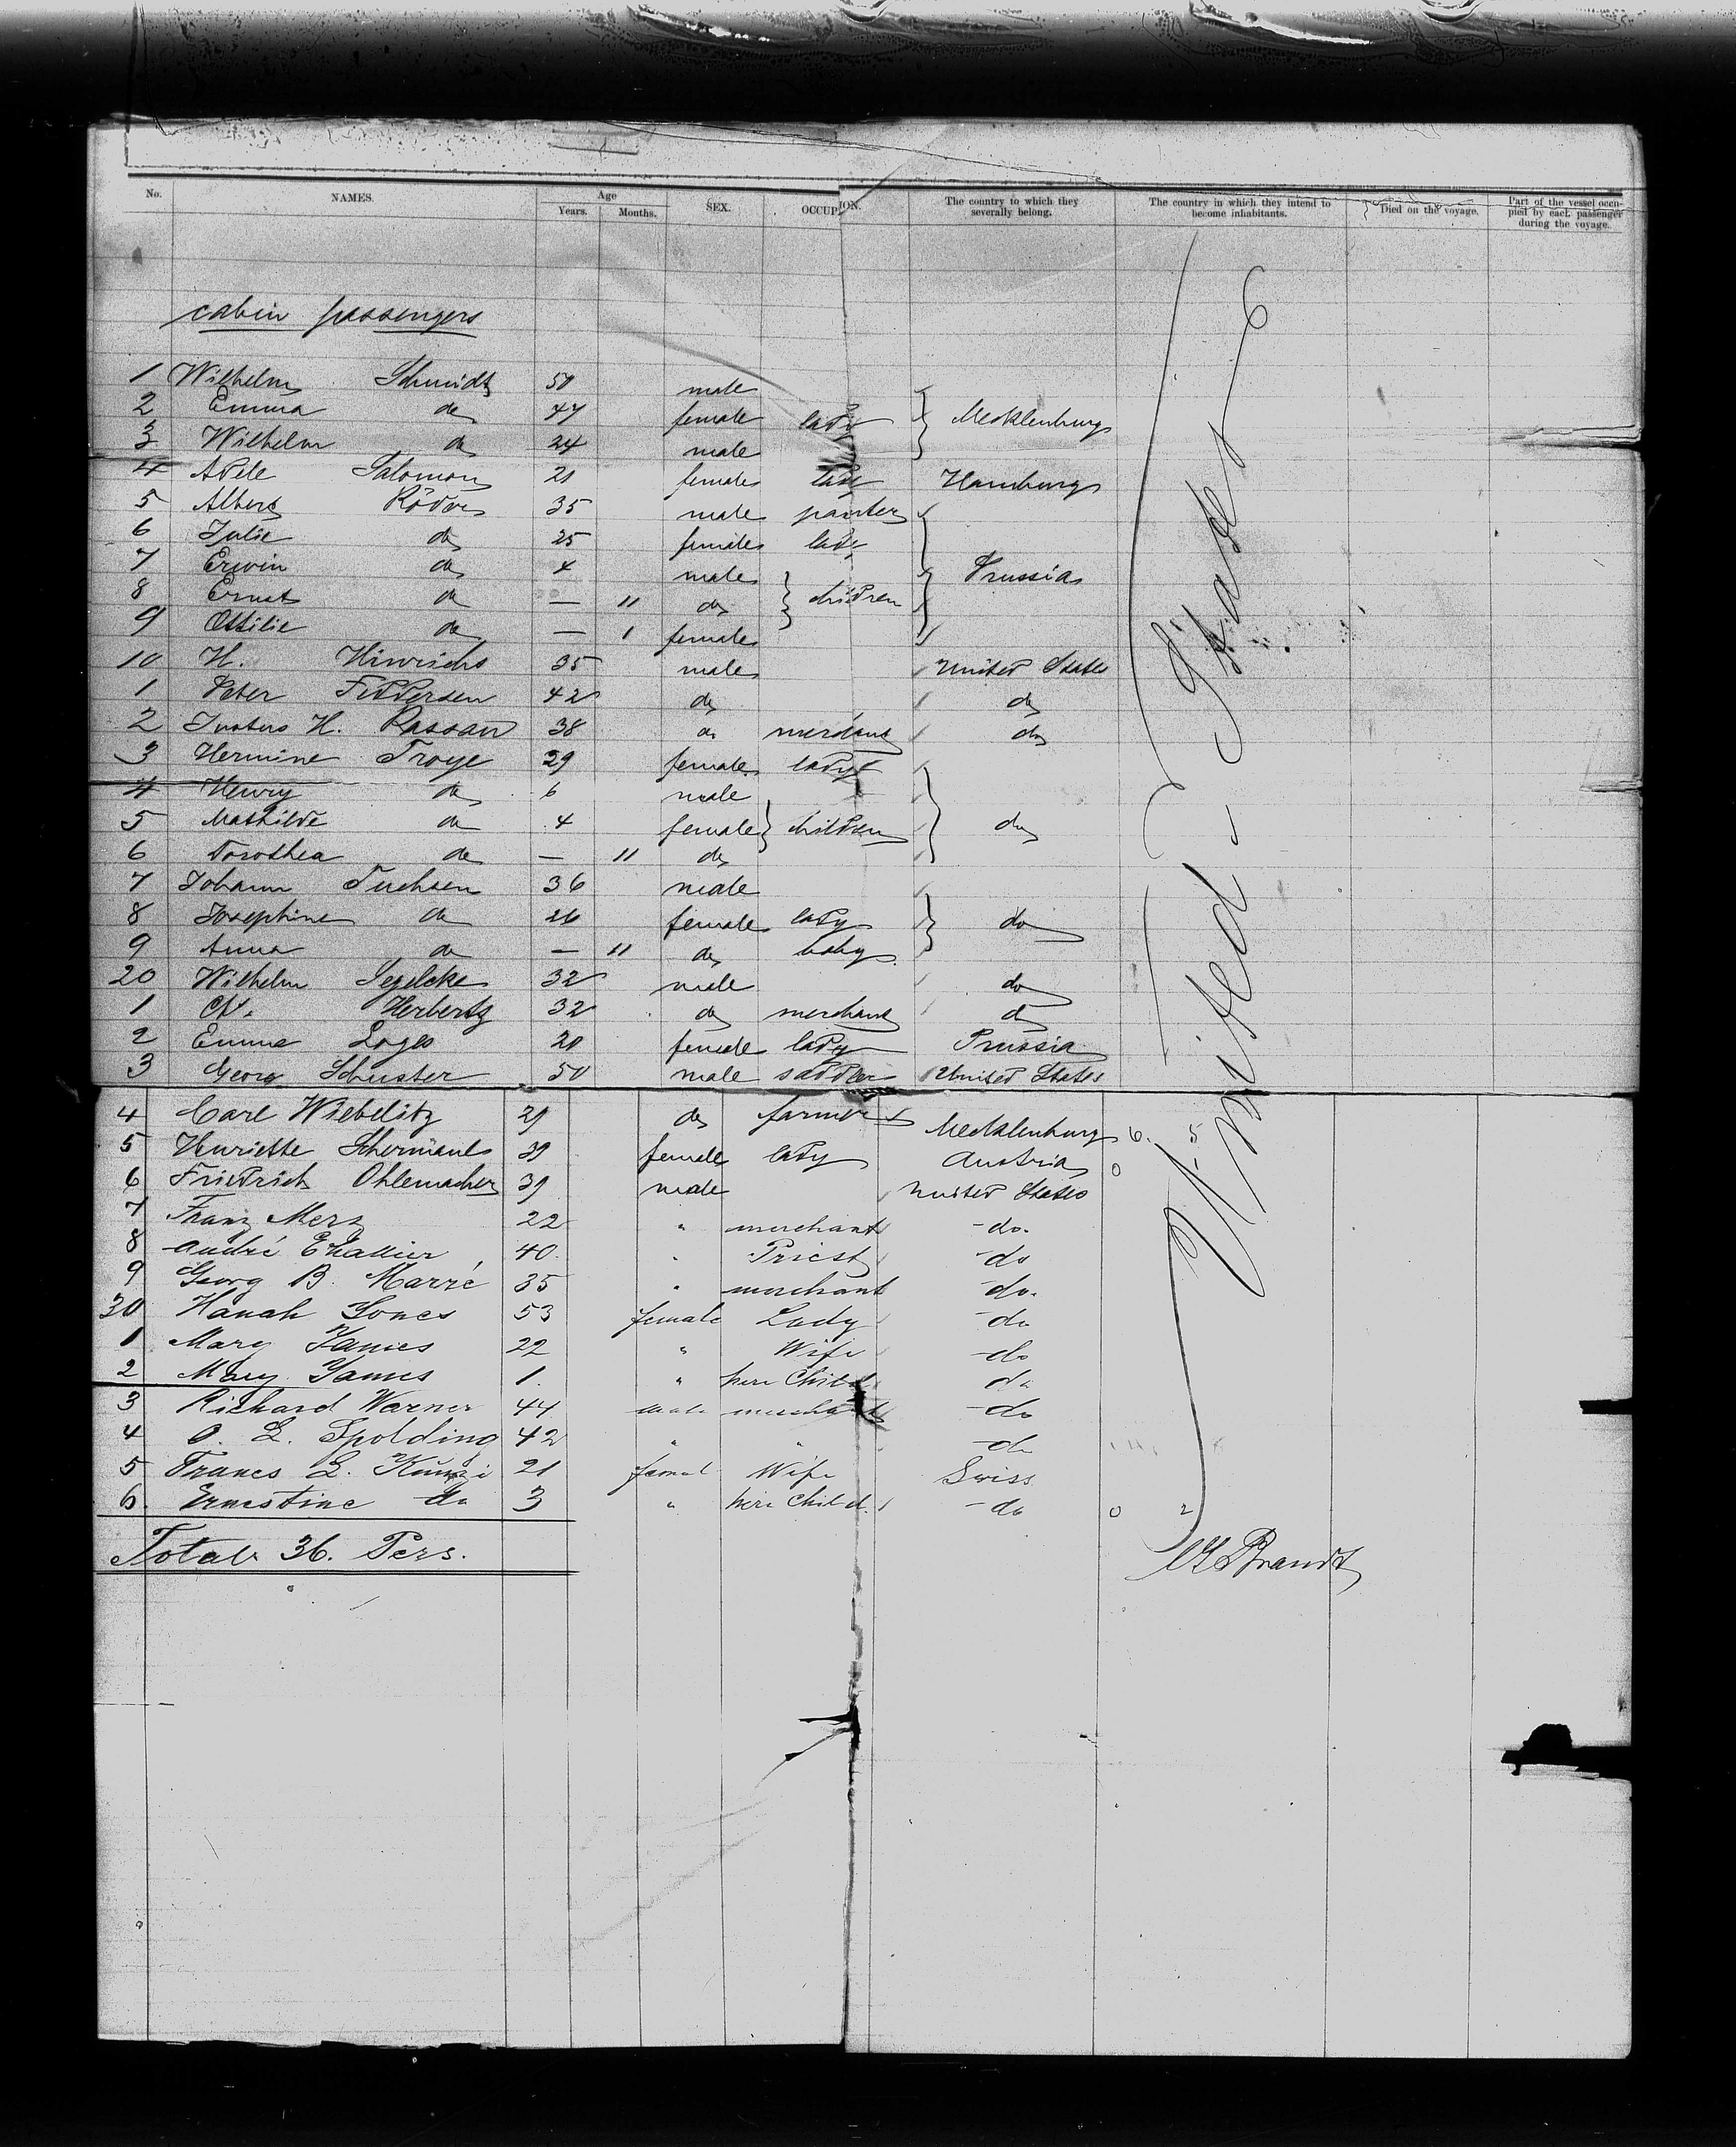 No. NAMES. Age Years. Months. SEX. OCCUPATION. The country to which they severally belong. The country in which they intend to become inhabitants. Died on the voyage. Part of the vessel occupied by each passenger during the voyage.
cabin passengers
1 Wilhelm Schmidt 50 male
2 Emma do 47 female lady Mecklenburg
3 Wilhelm do 24 male
4 Adele Salomon 21 female lady Hamburg
5 Albert Röder 35 male painter
6 Julie do 25 female lady
7 Erwin do 4 male Prussia
8 Ernst do — 11 do children
9 Ottilie do — 1 female
10 H. Hinrichs 35 male United States
1 Peter Feddersen 42 do do
2 Justus H. Rassau 38 do merchant do
3 Hermine Troye 29 female lady
4 Henry do 6 male
5 Mathilde do 4 female children do
6 Dorothea do — 11 do
7 Johann Tuchsen 36 male
8 Josephine do 26 female lady do
9 Anna do — 11 do baby
20 Wilhelm Segelcke 32 male do
1 Herbertz 32 do merchant do
2 Emma Loges 20 female lady Prussia
3 Georg Schuster 50 male saddler United States
4 Carl Wiebelitz 29 do farmer Mecklenburg 6. 5
5 Henriette 39 female lady Austria 0
6 Friedrich Ohlemacher 39 male United States
7 Franz Merz 22 " merchant - do -
8 André 40 " Priest - do
9 Georg B. Marzé 35 " merchant - do -
30 Hanah Jones 53 female Lady - do
1 Mary James 22 " Wife - do
2 Mary James 1 " here Child do
3 Richard Warner 44 male merchant - do
4 O. L. Spolding 42 " " - do
5 Frances L. Künzi 21 femal Wife Swiss
6. Ernestine do 3 " here Child - do 0 2
Total 36. Pers.
United States
Brandt